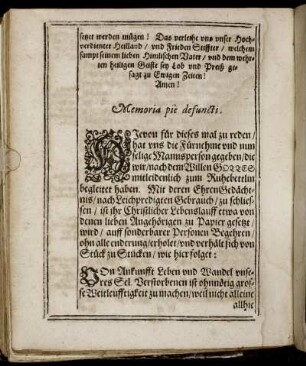 setzet werden mögen! Das verleihe uns unser Hoch-
verdienter Heilland / und Frieden Stiffter / welchem
sampt seinem lieben Himlischen Vater / und dem wehr-
ten heiligen Geiste sey Lob und Preiß ge-
sagt zu Ewigen Zeiten!
Amen!
Memoria piè defuncti.
HIevon für dieses mal zu reden /
hat uns die Fürnehme und nun
selige Mannsperson gegeben / die
wir / nach dem Willen GOTTES
mitleidendlich zum Ruhebettlin
begleitet haben. Mit deren Ehren Gedächt-
nis / nach Leichpredigten Gebrauch / zu schlies-
sen / ist ihr Christlicher Lebenslauff etwa von
denen lieben Angehörigen zu Papier gesetzt
wird / auff sonderbarer Personen Begehren /
ohn alle enderung / erholet / und verhält sich von
Stück zu Stücken / wie hier folget:
VOn Ankunfft Leben und Wandel unse-
res Sel. Verstorbenen ist ohnnötig gros-
se Weitleufftigkeit zu machen / weil nicht alleine
allhie